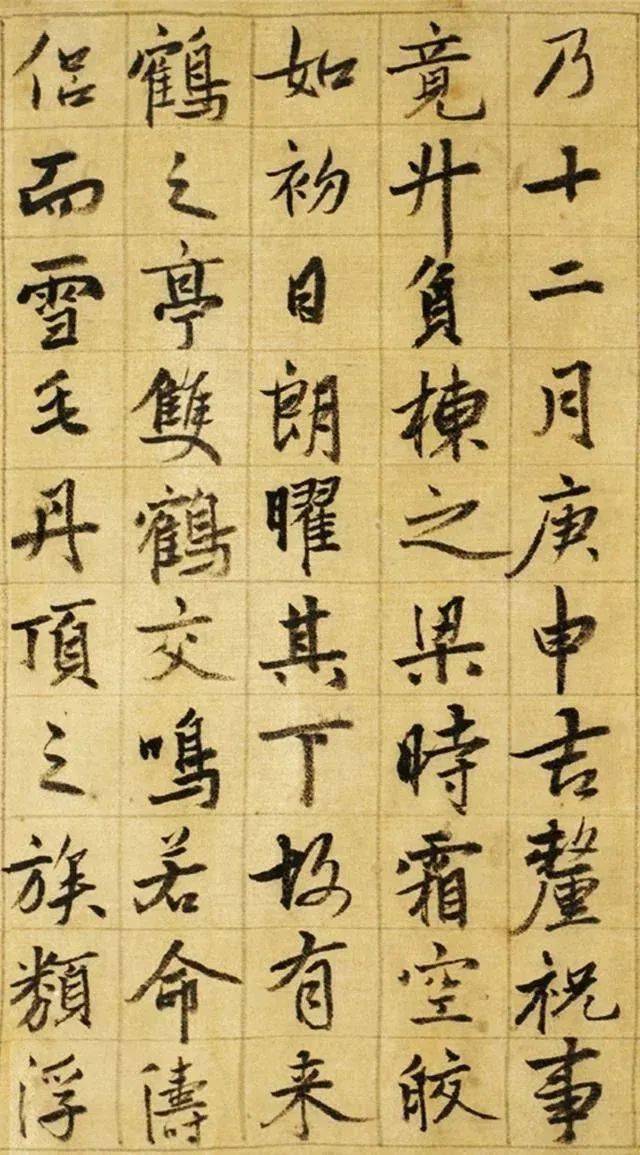 乃十二月庚申吉釐祝事
竟升負棟之梁時霜空皎
如初日朗曜其下故有来
鶴之亭雙鶴交鳴若命儔
侣而雪毛丹頂之族類浮